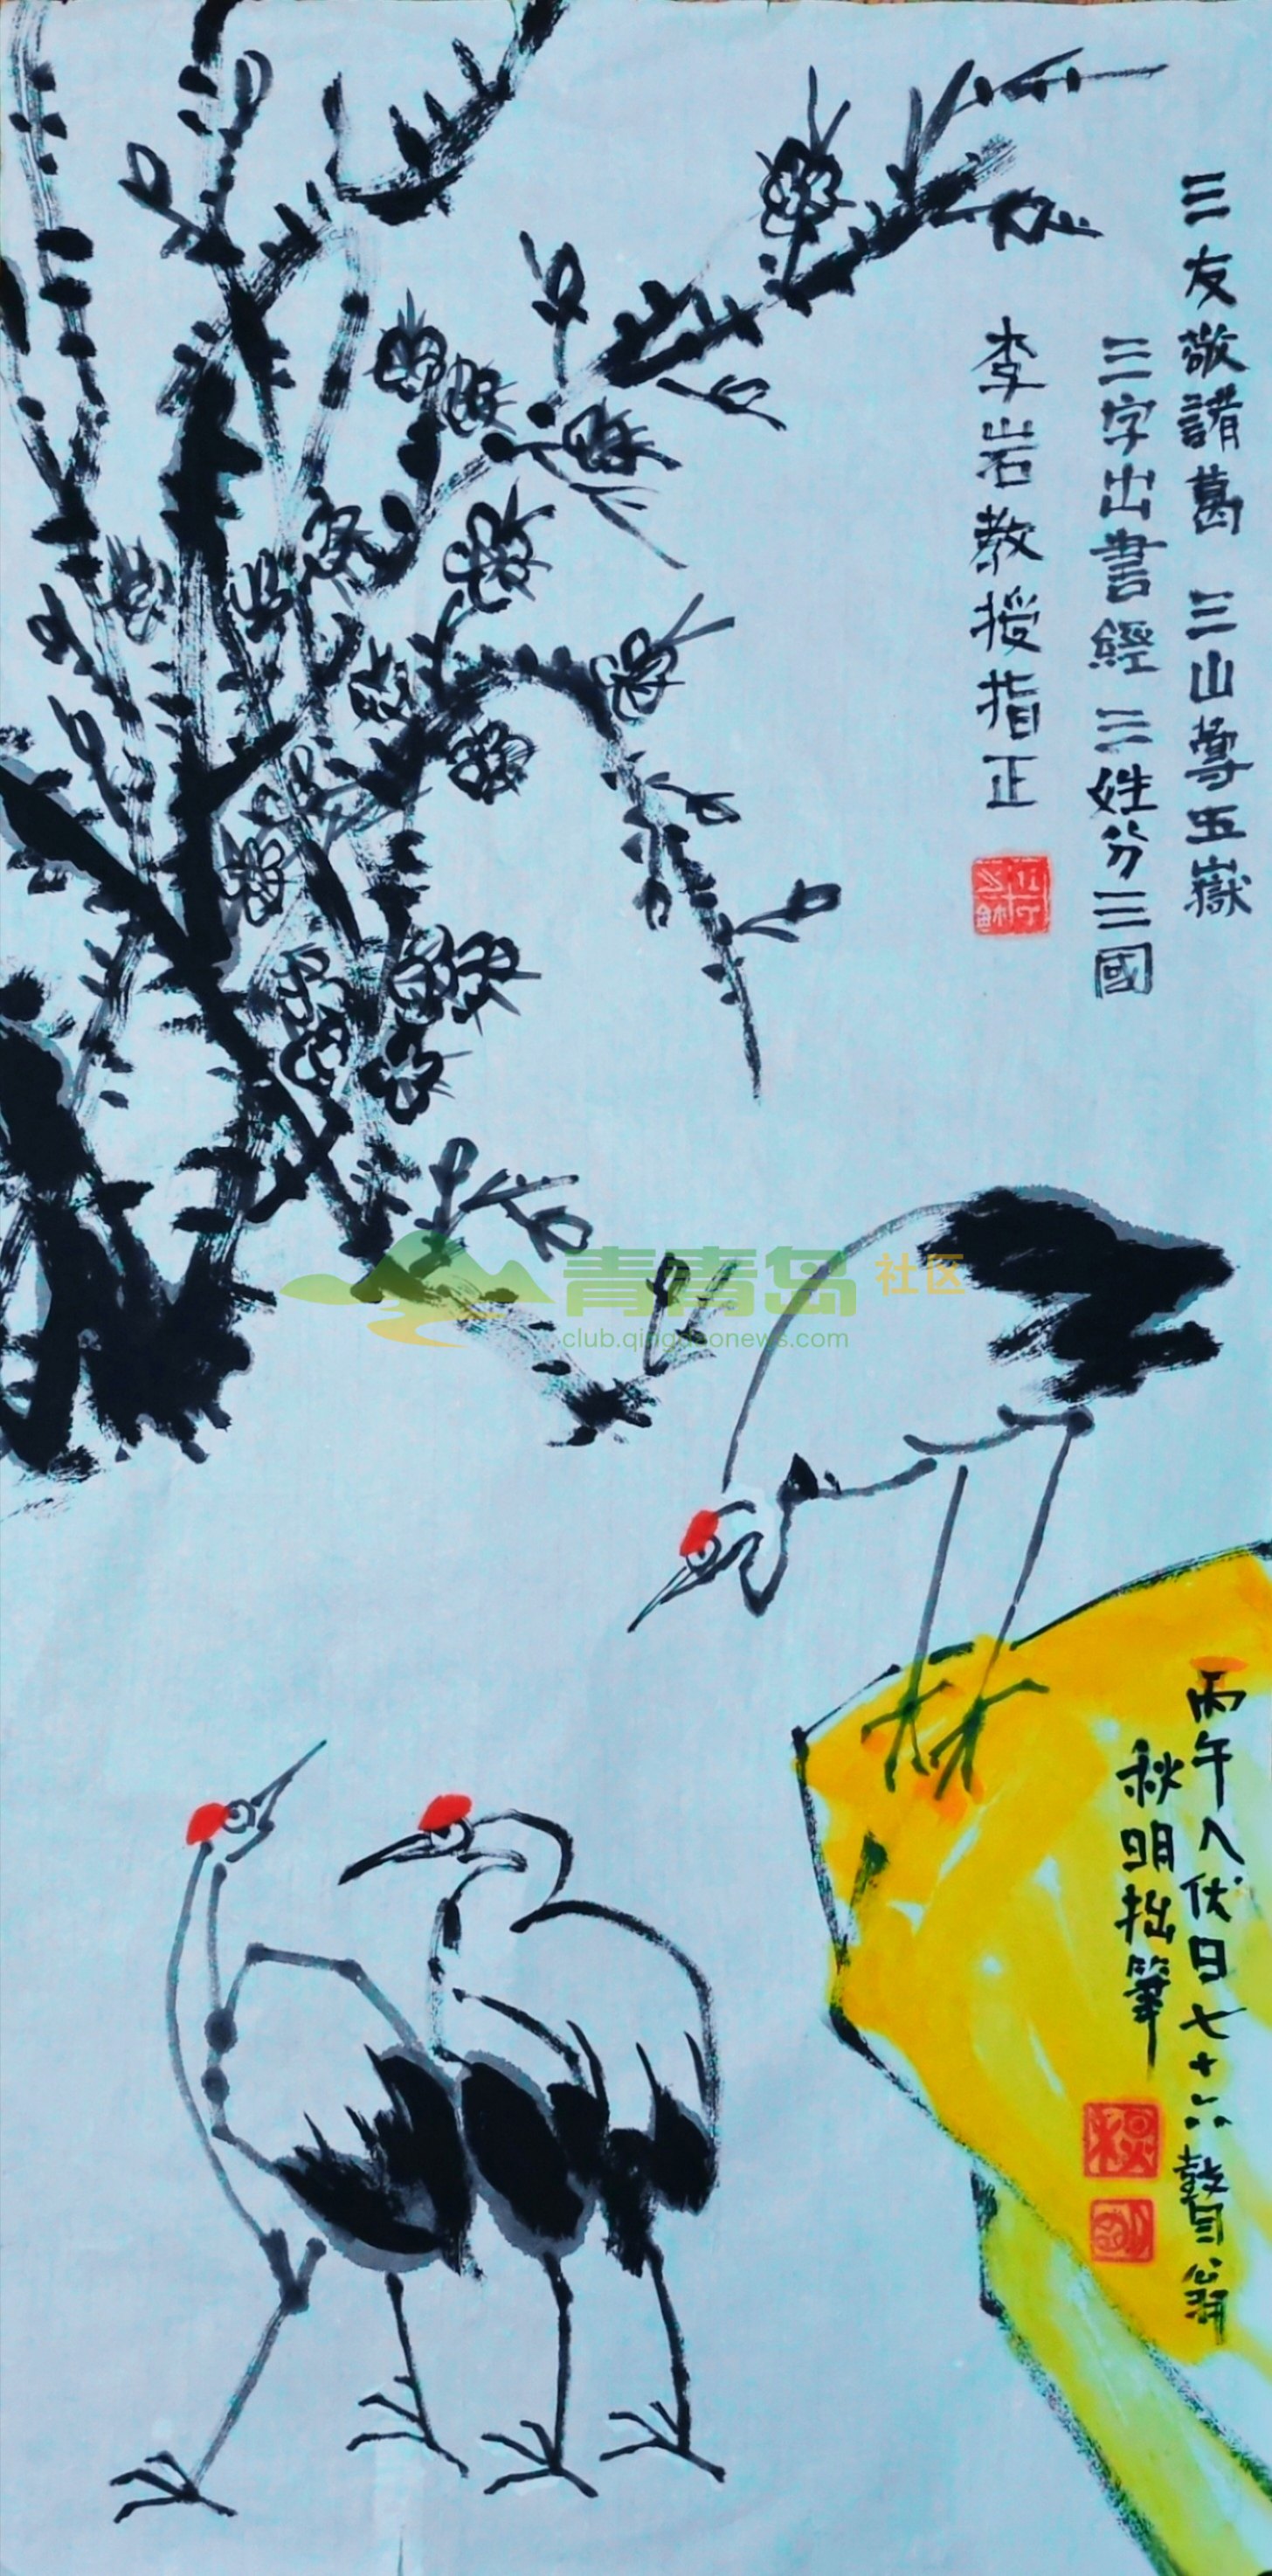 三友敬諸葛 三山尊五嶽
三字出書經 三姓分三國
李岩教授指正
青青岛社区
club.qingdaonews.com
丙午入伏日七十六瞽目公翁
秋明拙筆